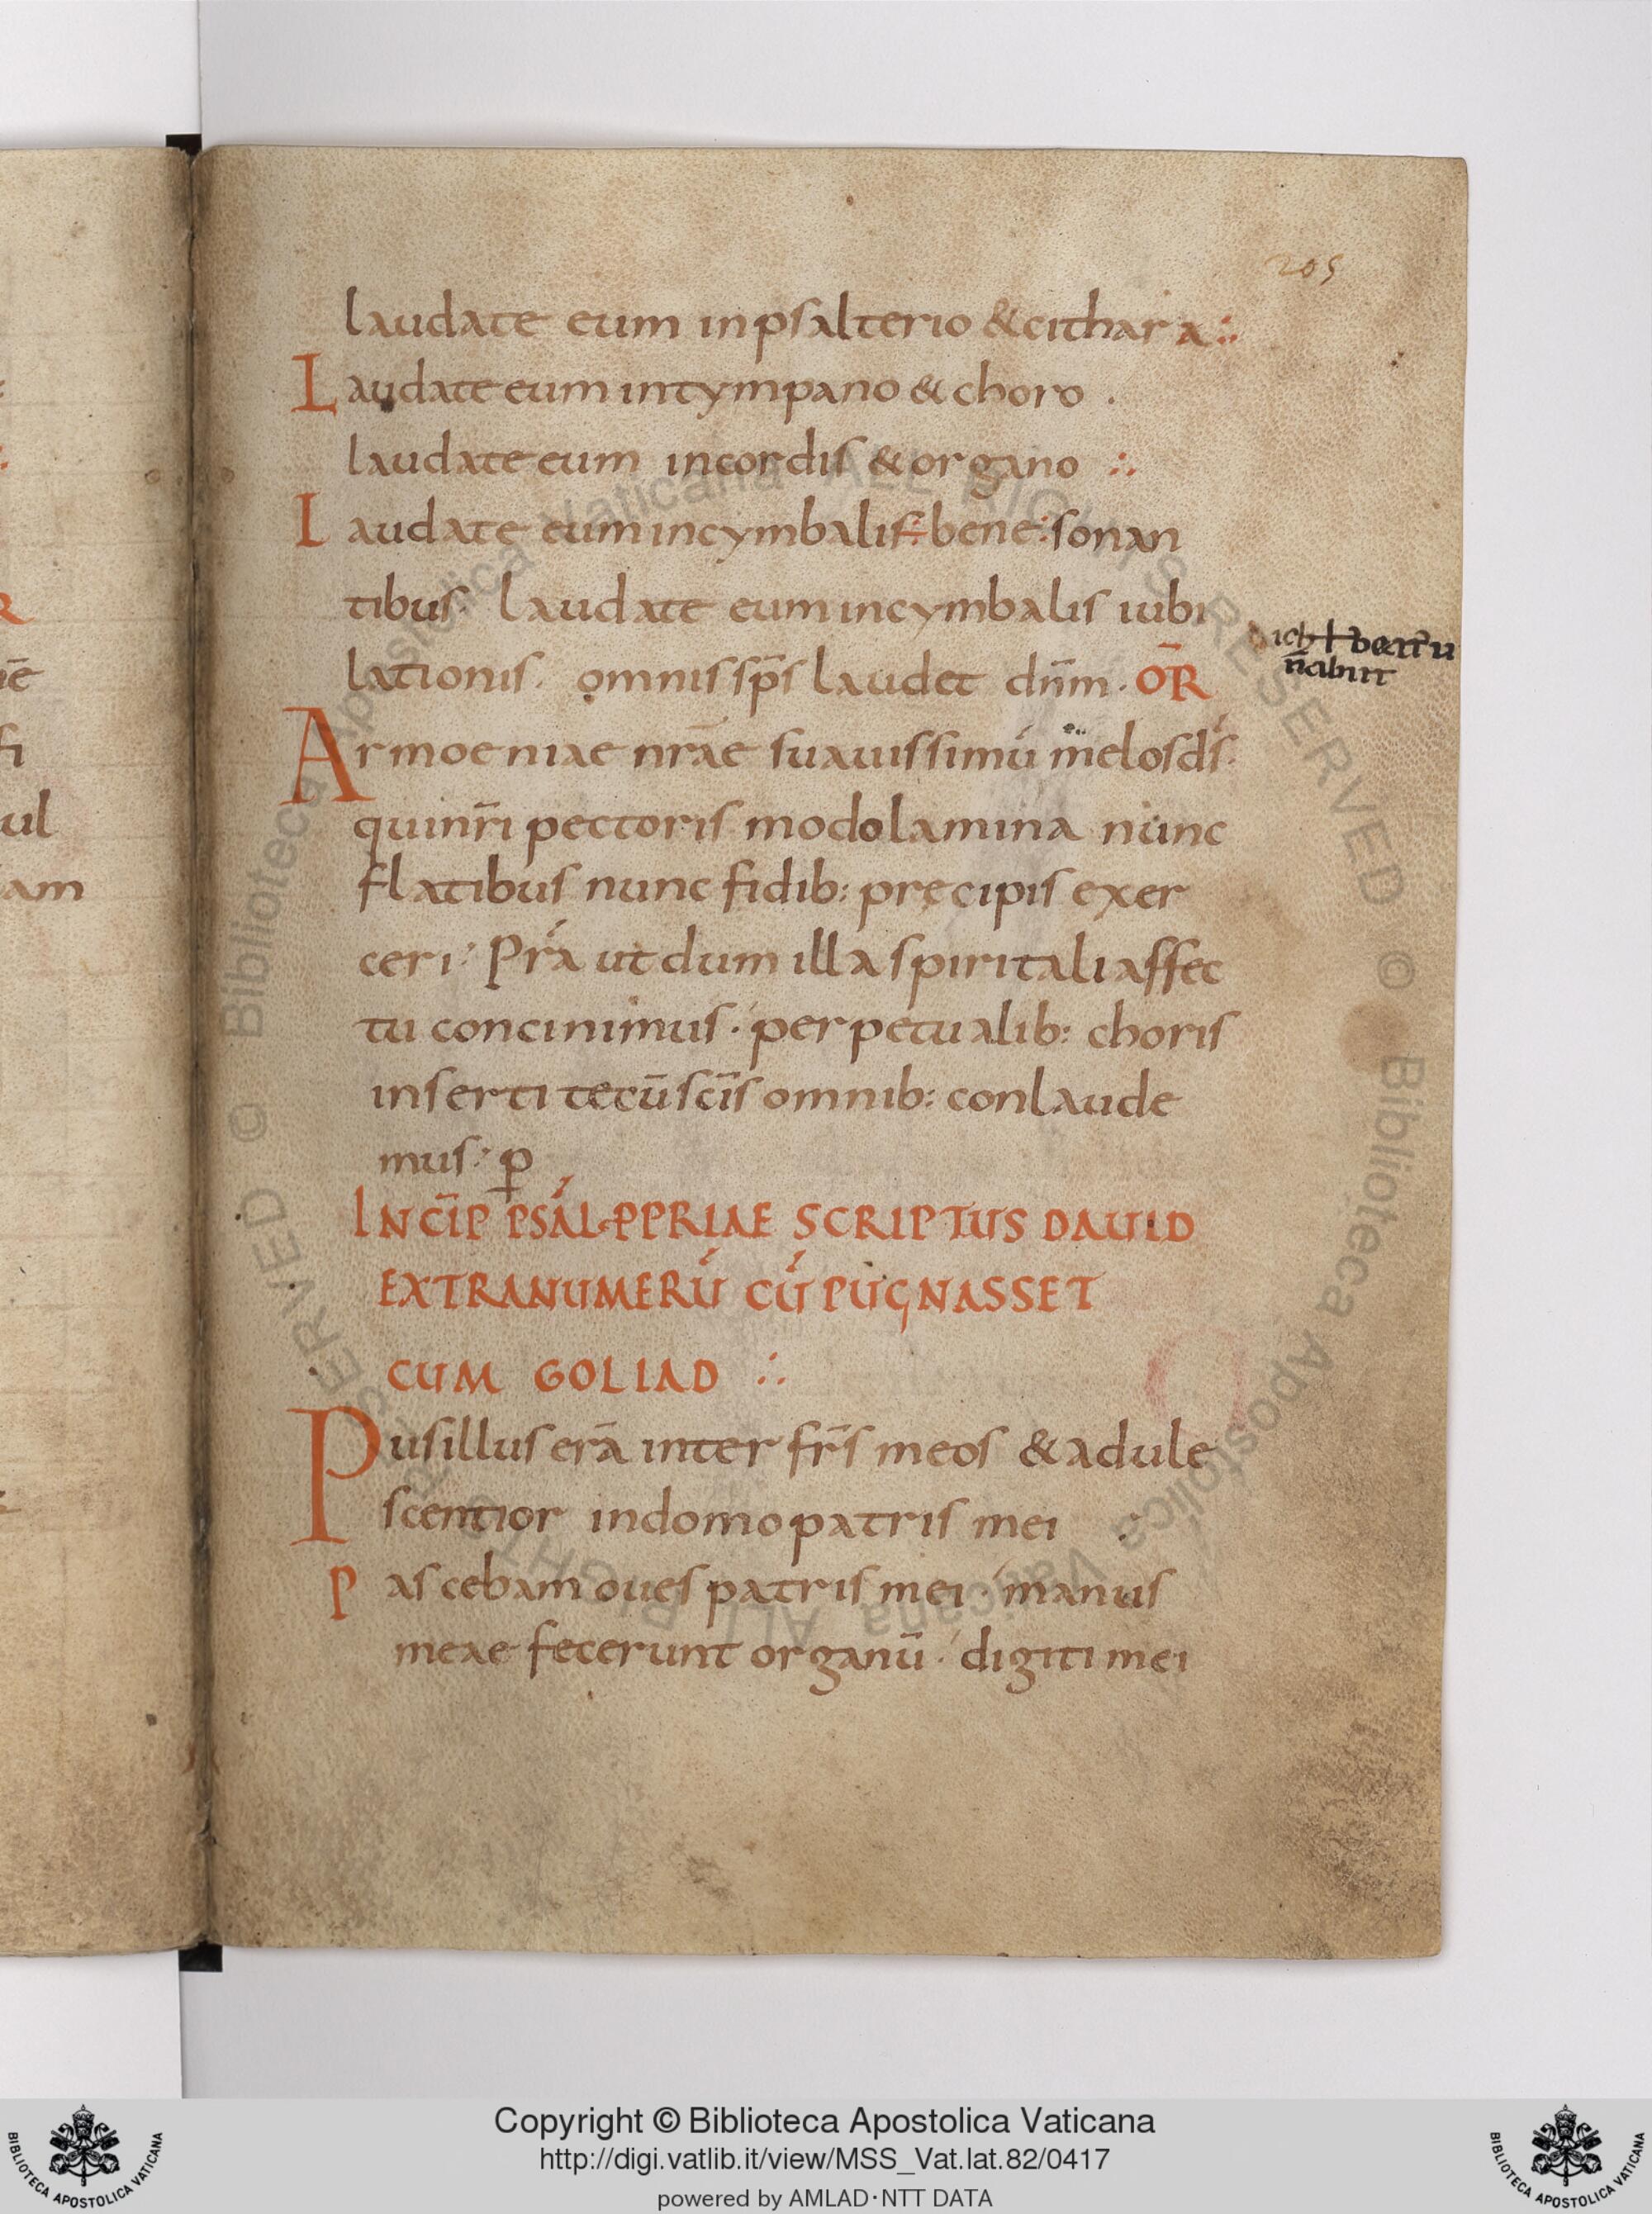 205
laudate eum inpsalterio &cithara∴
Laudate eum intympano & choro .
laudate eum incordis & organo ∴
Laudate eum incymbalis bene sonan
tibus. laudate eum incymbalis iubi
lationis. omnis sp̄s laudet dn̄m. OR̄
Armoeniae nrāe suauissimū melos ds̄.
quinr̄i pectoris modolamina nunc
flatibus nunc fidib: pręcipis exer
ceri. Prā ut dum illa spiritali affec
tu concinimus. perpetualib: choris
inserti tecū scīs omnib: conlaude
mus. ꝑ
INCĪP PSAL PPRIAE SCRIPTUS DAUID
EXTRANUMERŪ CŪ PUGNASSET
CUM GOLIAD ∴
Pusillus erā inter fr̄s meos & adule
scentior indomo patris mei
Pascebam oues patris mei. manus
meae fecerunt organū. digiti mei
R
iē
fi
ul
am
Copyright © Biblioteca Apostolica Vaticana
http://digi.vatlib.it/view/MSS_Vat.lat.82/0417
powered by AMLAD·NTT DATA
BIBLIOTECA APOSTOLICA VATICANA
BIBLIOTECA APOSTOLICA VATICANA